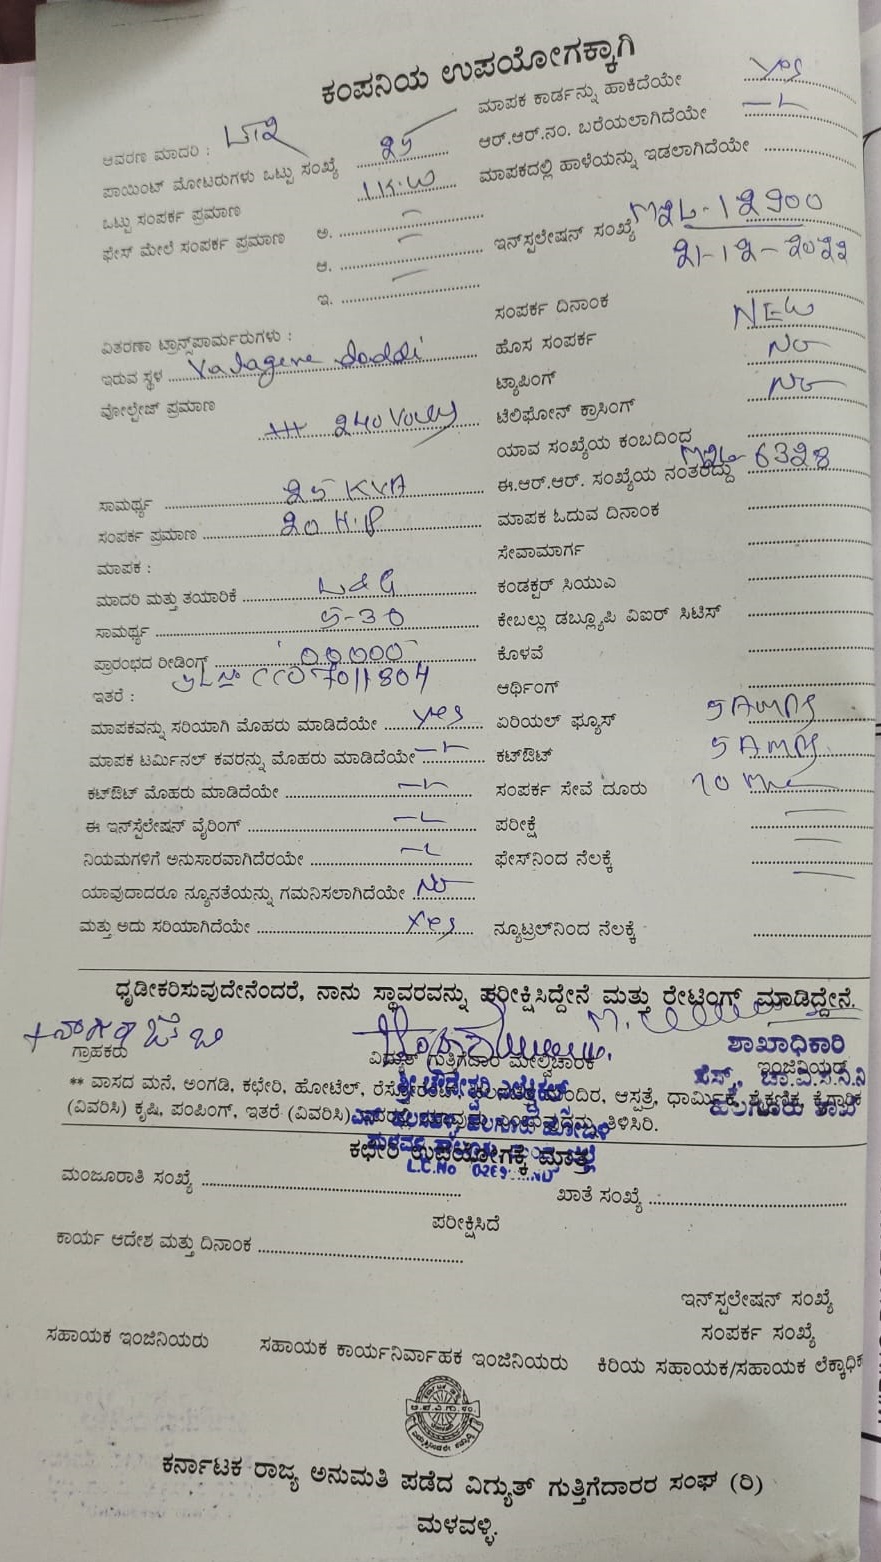 ಕಂಪನಿಯ ಉಪಯೋಗಕ್ಕಾಗಿ
ಆವರಣ ಮಾದರಿ : ಮಾಪಕ ಕಾರ್ಡನ್ನು ಹಾಕಿದೆಯೇ Yes
ಪಾಯಿಂಟ್ ಮೋಟರುಗಳು ಒಟ್ಟು ಸಂಖ್ಯೆ 25 ಆರ್.ಆರ್.ನಂ. ಬರೆಯಲಾಗಿದೆಯೇ
ಒಟ್ಟು ಸಂಪರ್ಕ ಪ್ರಮಾಣ 1K.W ಮಾಪಕದಲ್ಲಿ ಹಾಳೆಯನ್ನು ಇಡಲಾಗಿದೆಯೇ
ಫೇಸ್ ಮೇಲೆ ಸಂಪರ್ಕ ಪ್ರಮಾಣ ಅ. ಇನ್‌ಸ್ಪಲೇಷನ್ ಸಂಖ್ಯೆ M2L-12900
ಆ. 21-12-2022
ಇ.
ಸಂಪರ್ಕ ದಿನಾಂಕ
ವಿತರಣಾ ಟ್ರಾನ್ಸ್‌ಪಾರ್ಮರುಗಳು : ಹೊಸ ಸಂಪರ್ಕ NEW
ಇರುವ ಸ್ಥಳ Yatagere doddi ಟ್ಯಾಪಿಂಗ್ No
ವೋಲ್ಟೇಜ್ ಪ್ರಮಾಣ 240 Volts ಟೆಲಿಫೋನ್ ಕ್ರಾಸಿಂಗ್ No
ಯಾವ ಸಂಖ್ಯೆಯ ಕಂಬದಿಂದ
ಸಾಮರ್ಥ್ಯ 25 KVA ಈ.ಆರ್.ಆರ್. ಸಂಖ್ಯೆಯ ನಂತರದ್ದು M2L-6328
ಸಂಪರ್ಕ ಪ್ರಮಾಣ 20 H.P ಮಾಪಕ ಓದುವ ದಿನಾಂಕ
ಮಾಪಕ : ಸೇವಾಮಾರ್ಗ
ಮಾದರಿ ಮತ್ತು ತಯಾರಿಕೆ L&G ಕಂಡಕ್ಟರ್ ಸಿಯುಎ
ಸಾಮರ್ಥ್ಯ 5-30 ಕೇಬಲ್ಲು ಡಬ್ಲ್ಯೂಪಿ ವಿಐರ್ ಸಿಟಿಸ್
ಪ್ರಾರಂಭದ ರೀಡಿಂಗ್ 00000 ಕೊಳವೆ
ಇತರೆ : SL No CCO7011804 ಆರ್ಥಿಂಗ್
ಮಾಪಕವನ್ನು ಸರಿಯಾಗಿ ಮೊಹರು ಮಾಡಿದೆಯೇ yes ಏರಿಯಲ್ ಫ್ಯೂಸ್ 5 Amps
ಮಾಪಕ ಟರ್ಮಿನಲ್ ಕವರನ್ನು ಮೊಹರು ಮಾಡಿದೆಯೇ ಕಟ್‌ಔಟ್ 5 Amps
ಕಟ್‌ಔಟ್ ಮೊಹರು ಮಾಡಿದೆಯೇ ಸಂಪರ್ಕ ಸೇವೆ ದೂರು
ಈ ಇನ್‌ಸ್ಟೆಲೇಷನ್ ವೈರಿಂಗ್ ಪರೀಕ್ಷೆ
ನಿಯಮಗಳಿಗೆ ಅನುಸಾರವಾಗಿದೆರಯೇ ಫೇಸ್‌ನಿಂದ ನೆಲಕ್ಕೆ
ಯಾವುದಾದರೂ ನ್ಯೂನತೆಯನ್ನು ಗಮನಿಸಲಾಗಿದೆಯೇ No
ಮತ್ತು ಅದು ಸರಿಯಾಗಿದೆಯೇ Yes ನ್ಯೂಟ್ರಲ್‌ನಿಂದ ನೆಲಕ್ಕೆ
ಧೃಡೀಕರಿಸುವುದೇನೆಂದರೆ, ನಾನು ಸ್ಥಾವರವನ್ನು ಪರೀಕ್ಷಿಸಿದ್ದೇನೆ ಮತ್ತು ರೇಟಿಂಗ್ ಮಾಡಿದ್ದೇನೆ.
ಗ್ರಾಹಕರು ವಿದ್ಯುತ್ ಗುತ್ತಿಗೆದಾರ ಮೇಲ್ವಿಚಾರಕ ಶಾಖಾಧಿಕಾರಿ
ಇಂಜಿನಿಯರ್
** ವಾಸದ ಮನೆ, ಅಂಗಡಿ, ಕಛೇರಿ, ಹೋಟೆಲ್, ಮಂದಿರ, ಆಸ್ಪತ್ರೆ, ಧಾರ್ಮಿಕ, ಶೈಕ್ಷಣಿಕ, ಕೈಗಾರಿಕ
(ವಿವರಿಸಿ) ಕೃಷಿ, ಪಂಪಿಂಗ್, ಇತರೆ (ವಿವರಿಸಿ) ತಿಳಿಸಿರಿ.
ಕಛೇರಿ ಉಪಯೋಗಕ್ಕೆ ಮಾತ್ರ
L.C.No
ಮಂಜೂರಾತಿ ಸಂಖ್ಯೆ ಖಾತೆ ಸಂಖ್ಯೆ
ಪರೀಕ್ಷಿಸಿದೆ
ಕಾರ್ಯ ಆದೇಶ ಮತ್ತು ದಿನಾಂಕ
ಇನ್‌ಸ್ಪಲೇಷನ್ ಸಂಖ್ಯೆ
ಸಂಪರ್ಕ ಸಂಖ್ಯೆ
ಸಹಾಯಕ ಇಂಜಿನಿಯರು ಸಹಾಯಕ ಕಾರ್ಯನಿರ್ವಾಹಕ ಇಂಜಿನಿಯರು ಕಿರಿಯ ಸಹಾಯಕ/ಸಹಾಯಕ ಲೆಕ್ಕಾಧಿಕ
ಕರ್ನಾಟಕ ರಾಜ್ಯ ಅನುಮತಿ ಪಡೆದ ವಿದ್ಯುತ್ ಗುತ್ತಿಗೆದಾರರ ಸಂಘ (ರಿ)
ಮಳವಳ್ಳಿ.